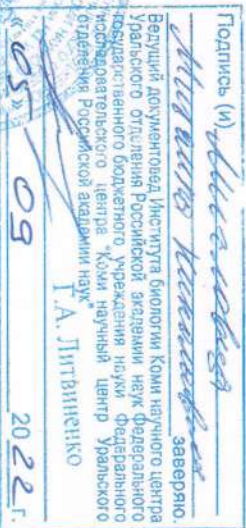 Подпись (и)
заверяю
Ведущий документовед Института биологии Коми научного центра
Уральского отделения Российской академии наук Федерального
государственного бюджетного учреждения науки Федерального
исследовательского центра "Коми научный центр Уральского
отделения Российской академии наук"
Г.А. Литвиненко
«05» 09 2022 г.